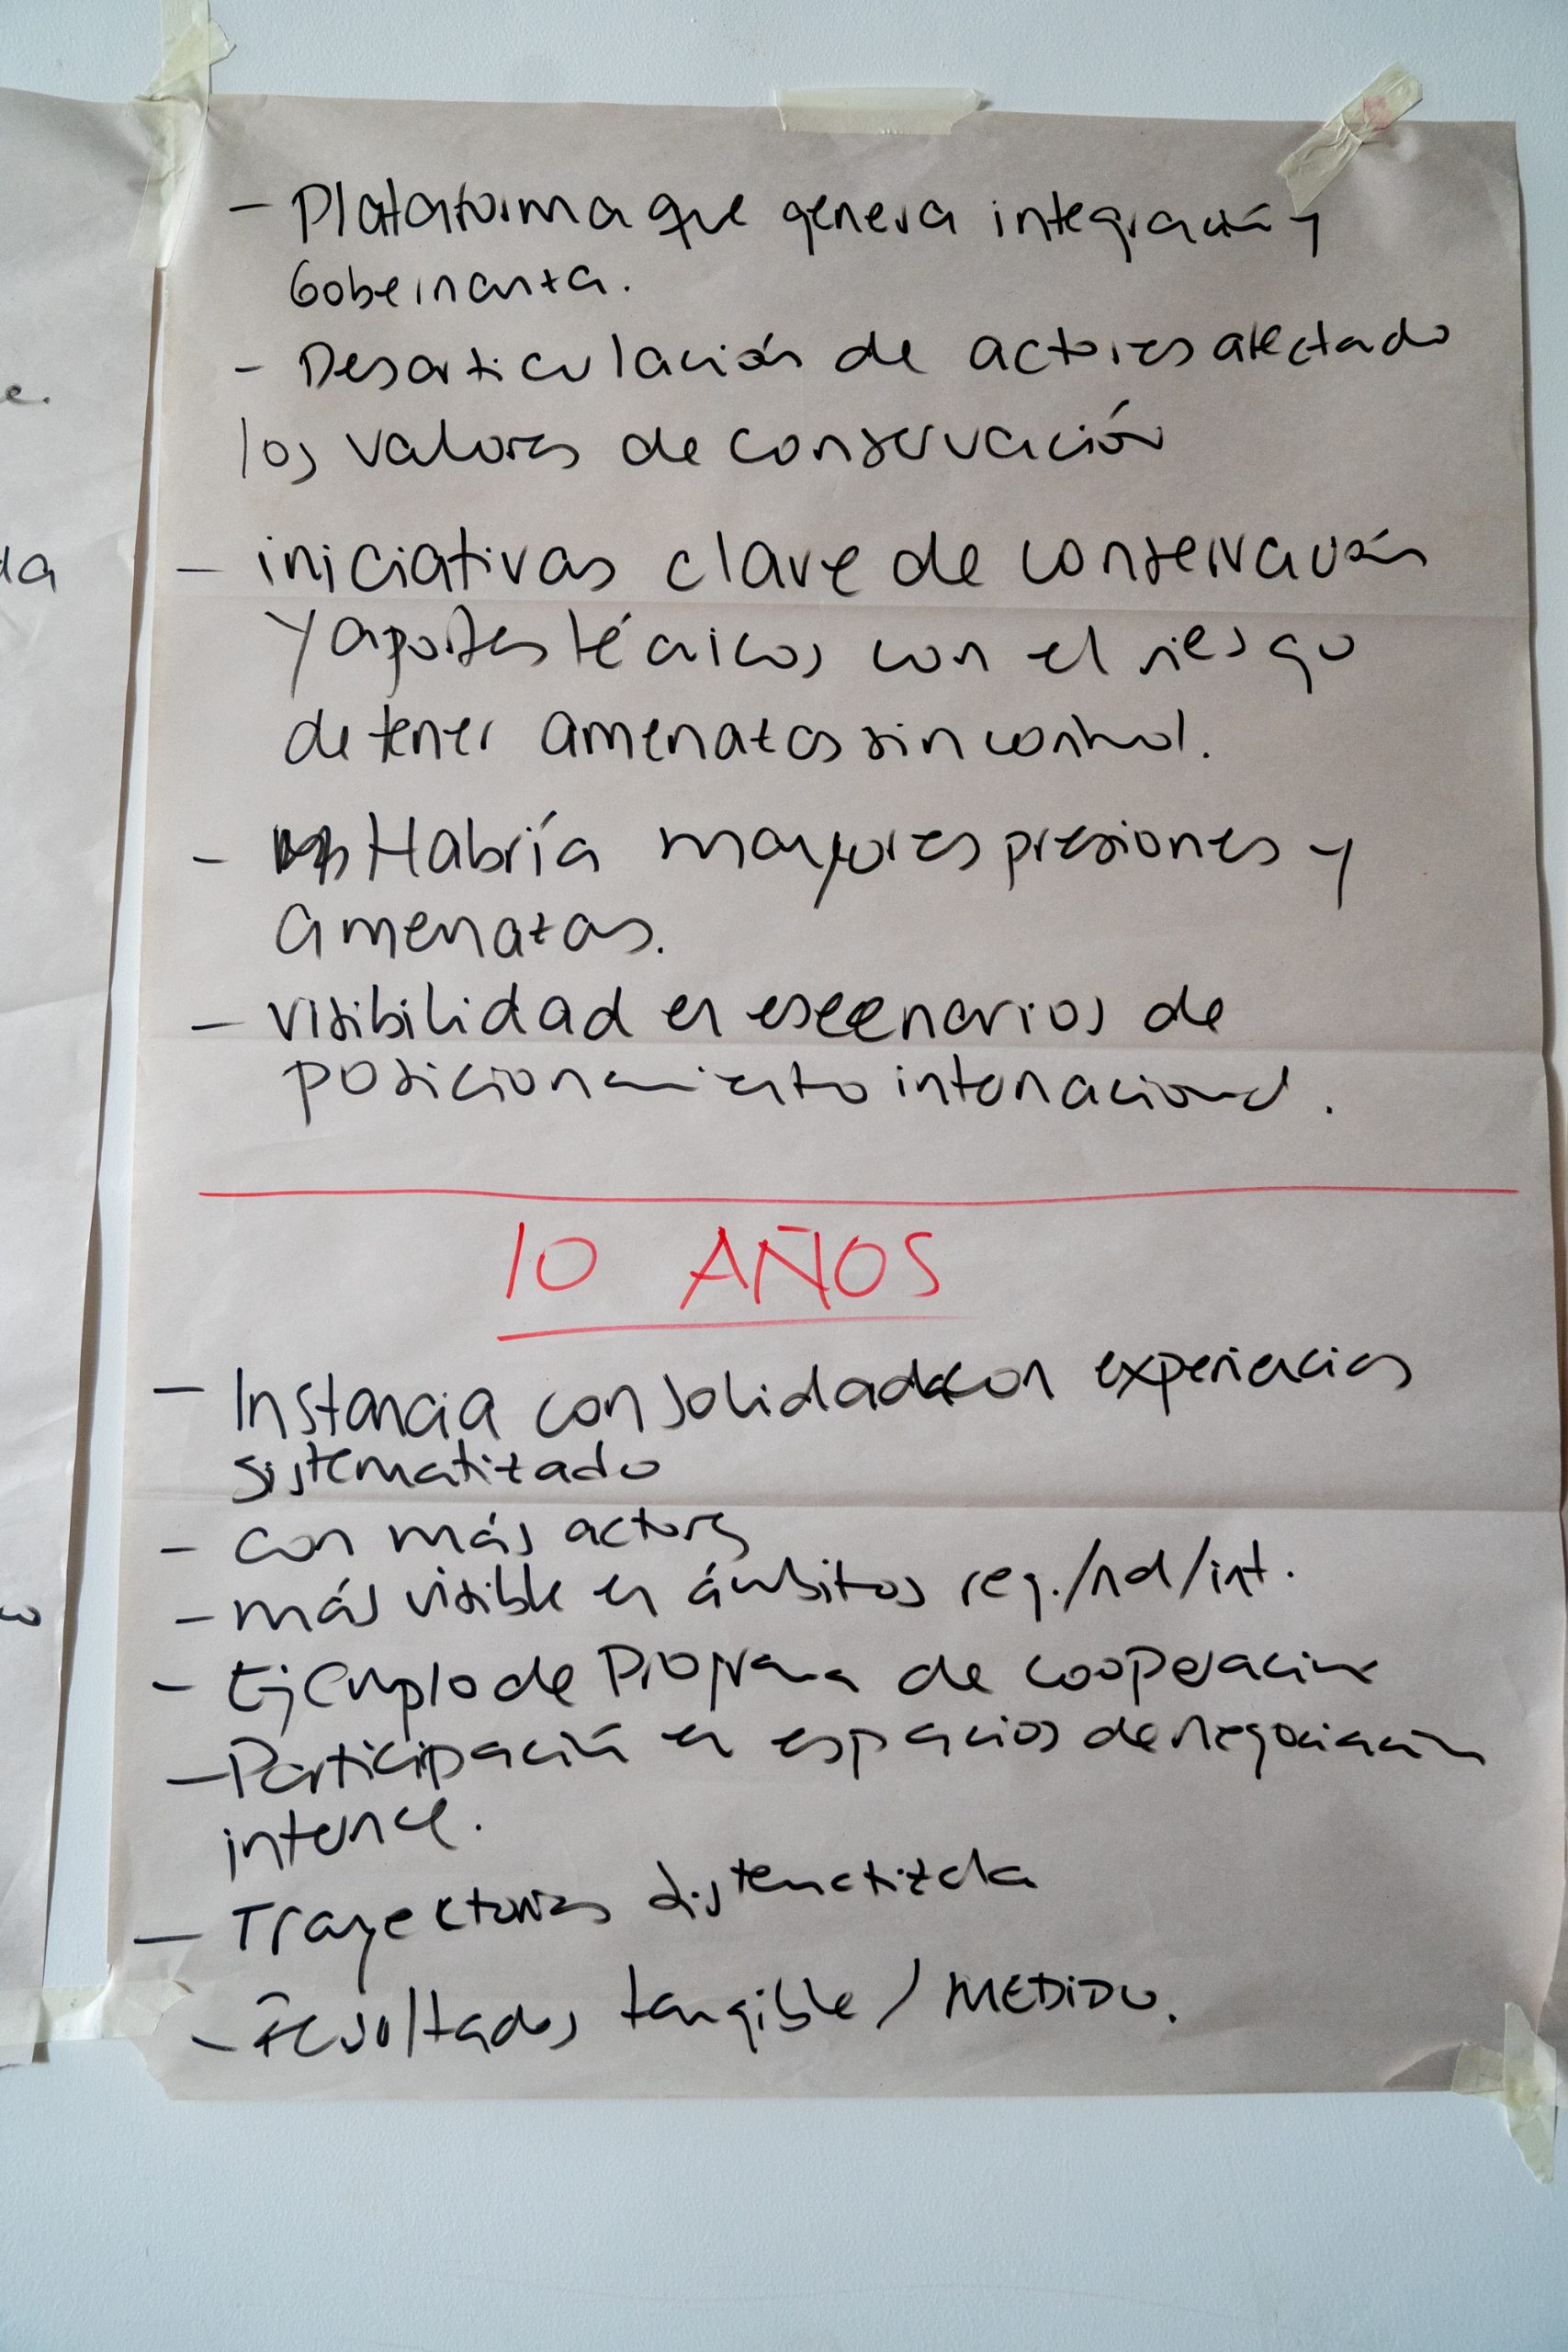 - Plataforma que genera integración y
Gobernanza.
- Desarticulación de actores afectado
los valores de conservación
- iniciativas clave de conservación
y aportes técnicos con el riesgo
de tener amenazas sin control.
- Habría mayores presiones y
amenazas.
- visibilidad en escenarios de
posicionamiento internacional.
10 AÑOS
- Instancia consolidada con experiencias
sistematizado
- con más actores
- más visible en ámbitos reg./nal/int.
- Ejemplo de Programa de cooperación
- Participación en espacios de negociación
internal.
- Trayectorias sistematizada
- Resultados tangible / MEDIDO.
e.
da